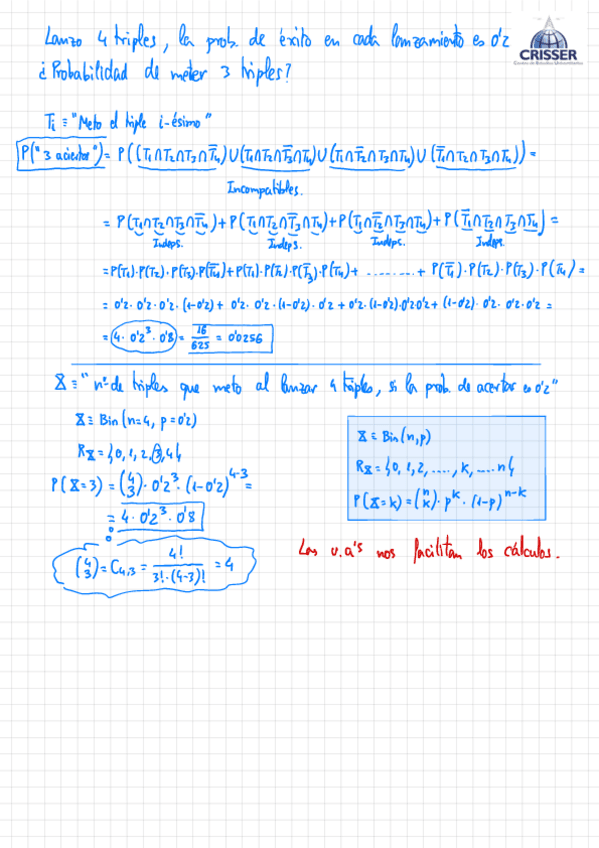 Lanzo 4 triples, la prob. de éxito en cada lanzamiento es 0'2
¿Probabilidad de meter 3 triples?
CRISSER
Centro de Estudios Universitarios
Ti ≡ "Meto el triple i-ésimo"
P("3 aciertos") = P((T₁∩T₂∩T₃∩T̅₄)∪(T₁∩T₂∩T̅₃∩T₄)∪(T₁∩T̅₂∩T₃∩T₄)∪(T̅₁∩T₂∩T₃∩T₄)) =
Incompatibles.
= P(T₁∩T₂∩T₃∩T̅₄)+P(T₁∩T₂∩T̅₃∩T₄)+P(T₁∩T̅₂∩T₃∩T₄)+P(T̅₁∩T₂∩T₃∩T₄) =
Indeps. Indeps. Indeps. Indeps.
= P(T₁)·P(T₂)·P(T₃)·P(T̅₄)+P(T₁)·P(T₂)·P(T̅₃)·P(T₄)+ ........ + P(T̅₁)·P(T₂)·P(T₃)·P(T₄) =
= 0'2·0'2·0'2·(1-0'2)+ 0'2·0'2·(1-0'2)·0'2 + 0'2·(1-0'2)·0'2·0'2 + (1-0'2)·0'2·0'2·0'2 =
= 4·0'2³·0'8 = 16/625 = 0'0256
X ≡ "nº de triples que meto al lanzar 4 triples, si la prob. de acertar es 0'2"
X ≡ Bin(n=4, p=0'2)
R_X = {0, 1, 2, 3, 4}
P(X=3) = (4 3)·0'2³·(1-0'2)⁴⁻³ =
= 4·0'2³·0'8
(4 3) = C₄,₃ = 4!/(3!·(4-3)!) = 4
X ≡ Bin(n,p)
R_X = {0, 1, 2, ...., k, .... n}
P(X=k) = (n k)·pᵏ·(1-p)ⁿ⁻ᵏ
Las v.a's nos facilitan los cálculos.